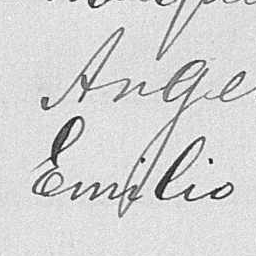 Ange
Emilio